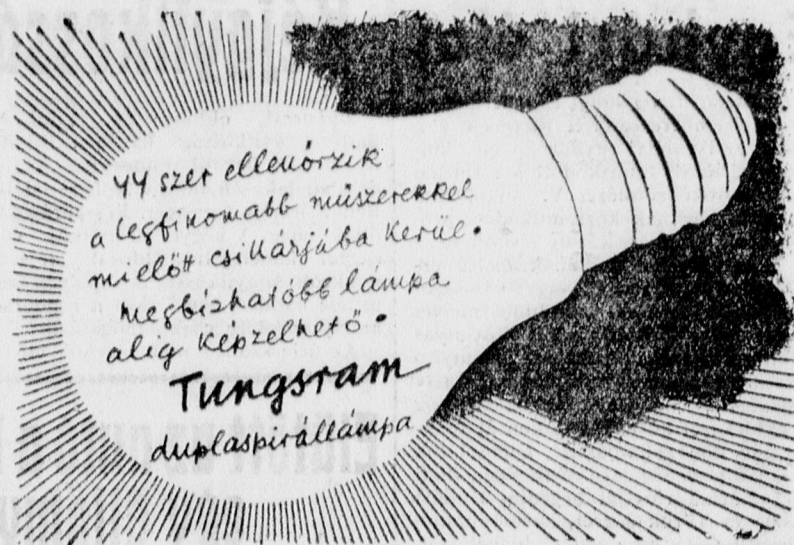 44 szer ellenőrzik
a legfinomabb műszerekkel
mielőtt csillárjába kerül.
megbízhatóbb lámpa
alig képzelhető.
Tungsram
duplaspirállámpa